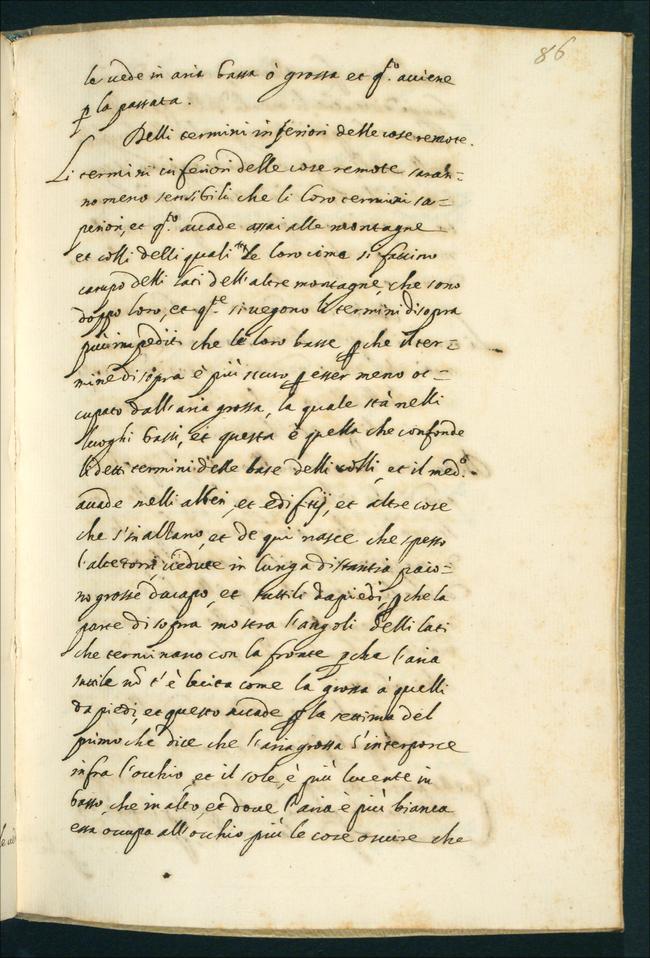 86
le uede in aria bassa ò grossa et q.to auiene
p la passata.
Delli termini inferiori delle cose remote.
Li termini inferiori delle cose remote saran=
no meno sensibili che li loro termini su=
periori, et q.to accade assai alle montagne
et colli delli quali le loro cime si faccino
campo delli lati dell'altre montagne, che sono
doppo loro, et q.te si uegono li termini di sopra
più che le loro base p che il ter=
mine di sopra è più scuro p esser meno oc=
cupato dall'aria grossa, la quale stà nelli
luoghi bassi, et questa è quella che confonde
li detti termini delle base delli colli, et il med.o
accade nelli alberi, et edifitij, et altre cose
che s'inalzano, et de qui nasce che spesso
l'alte torri uedute in lunga distantia paio=
no grosse dacapo, et sottili dapiedi, p che la
parte di sopra mostra l'angoli delli lati
che terminano con la fronte p che l'aria
sottile nō t'è lecita come la grossa à quelli
da piedi, et questo accade p la settima del
primo che dice che l'aria grossa s'interpone
infra l'occhio, et il sole, è più lucente in
basso, che in alto, et doue l'aria è più bianca
essa occupa all'occhio più le cose oscure che